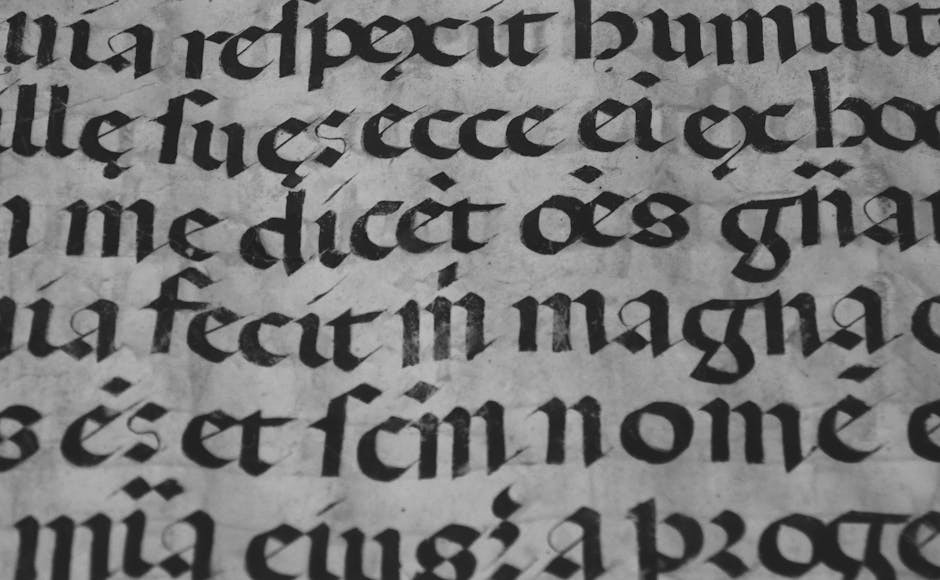 uia reſpexit humilit
illę ſuę: ecce ei ex hoc
n me dicẽt oẽs gñar
uia fecit m̃ magna
s ẽs et ſcm̃ nomẽ e
mĩa eius: A proge